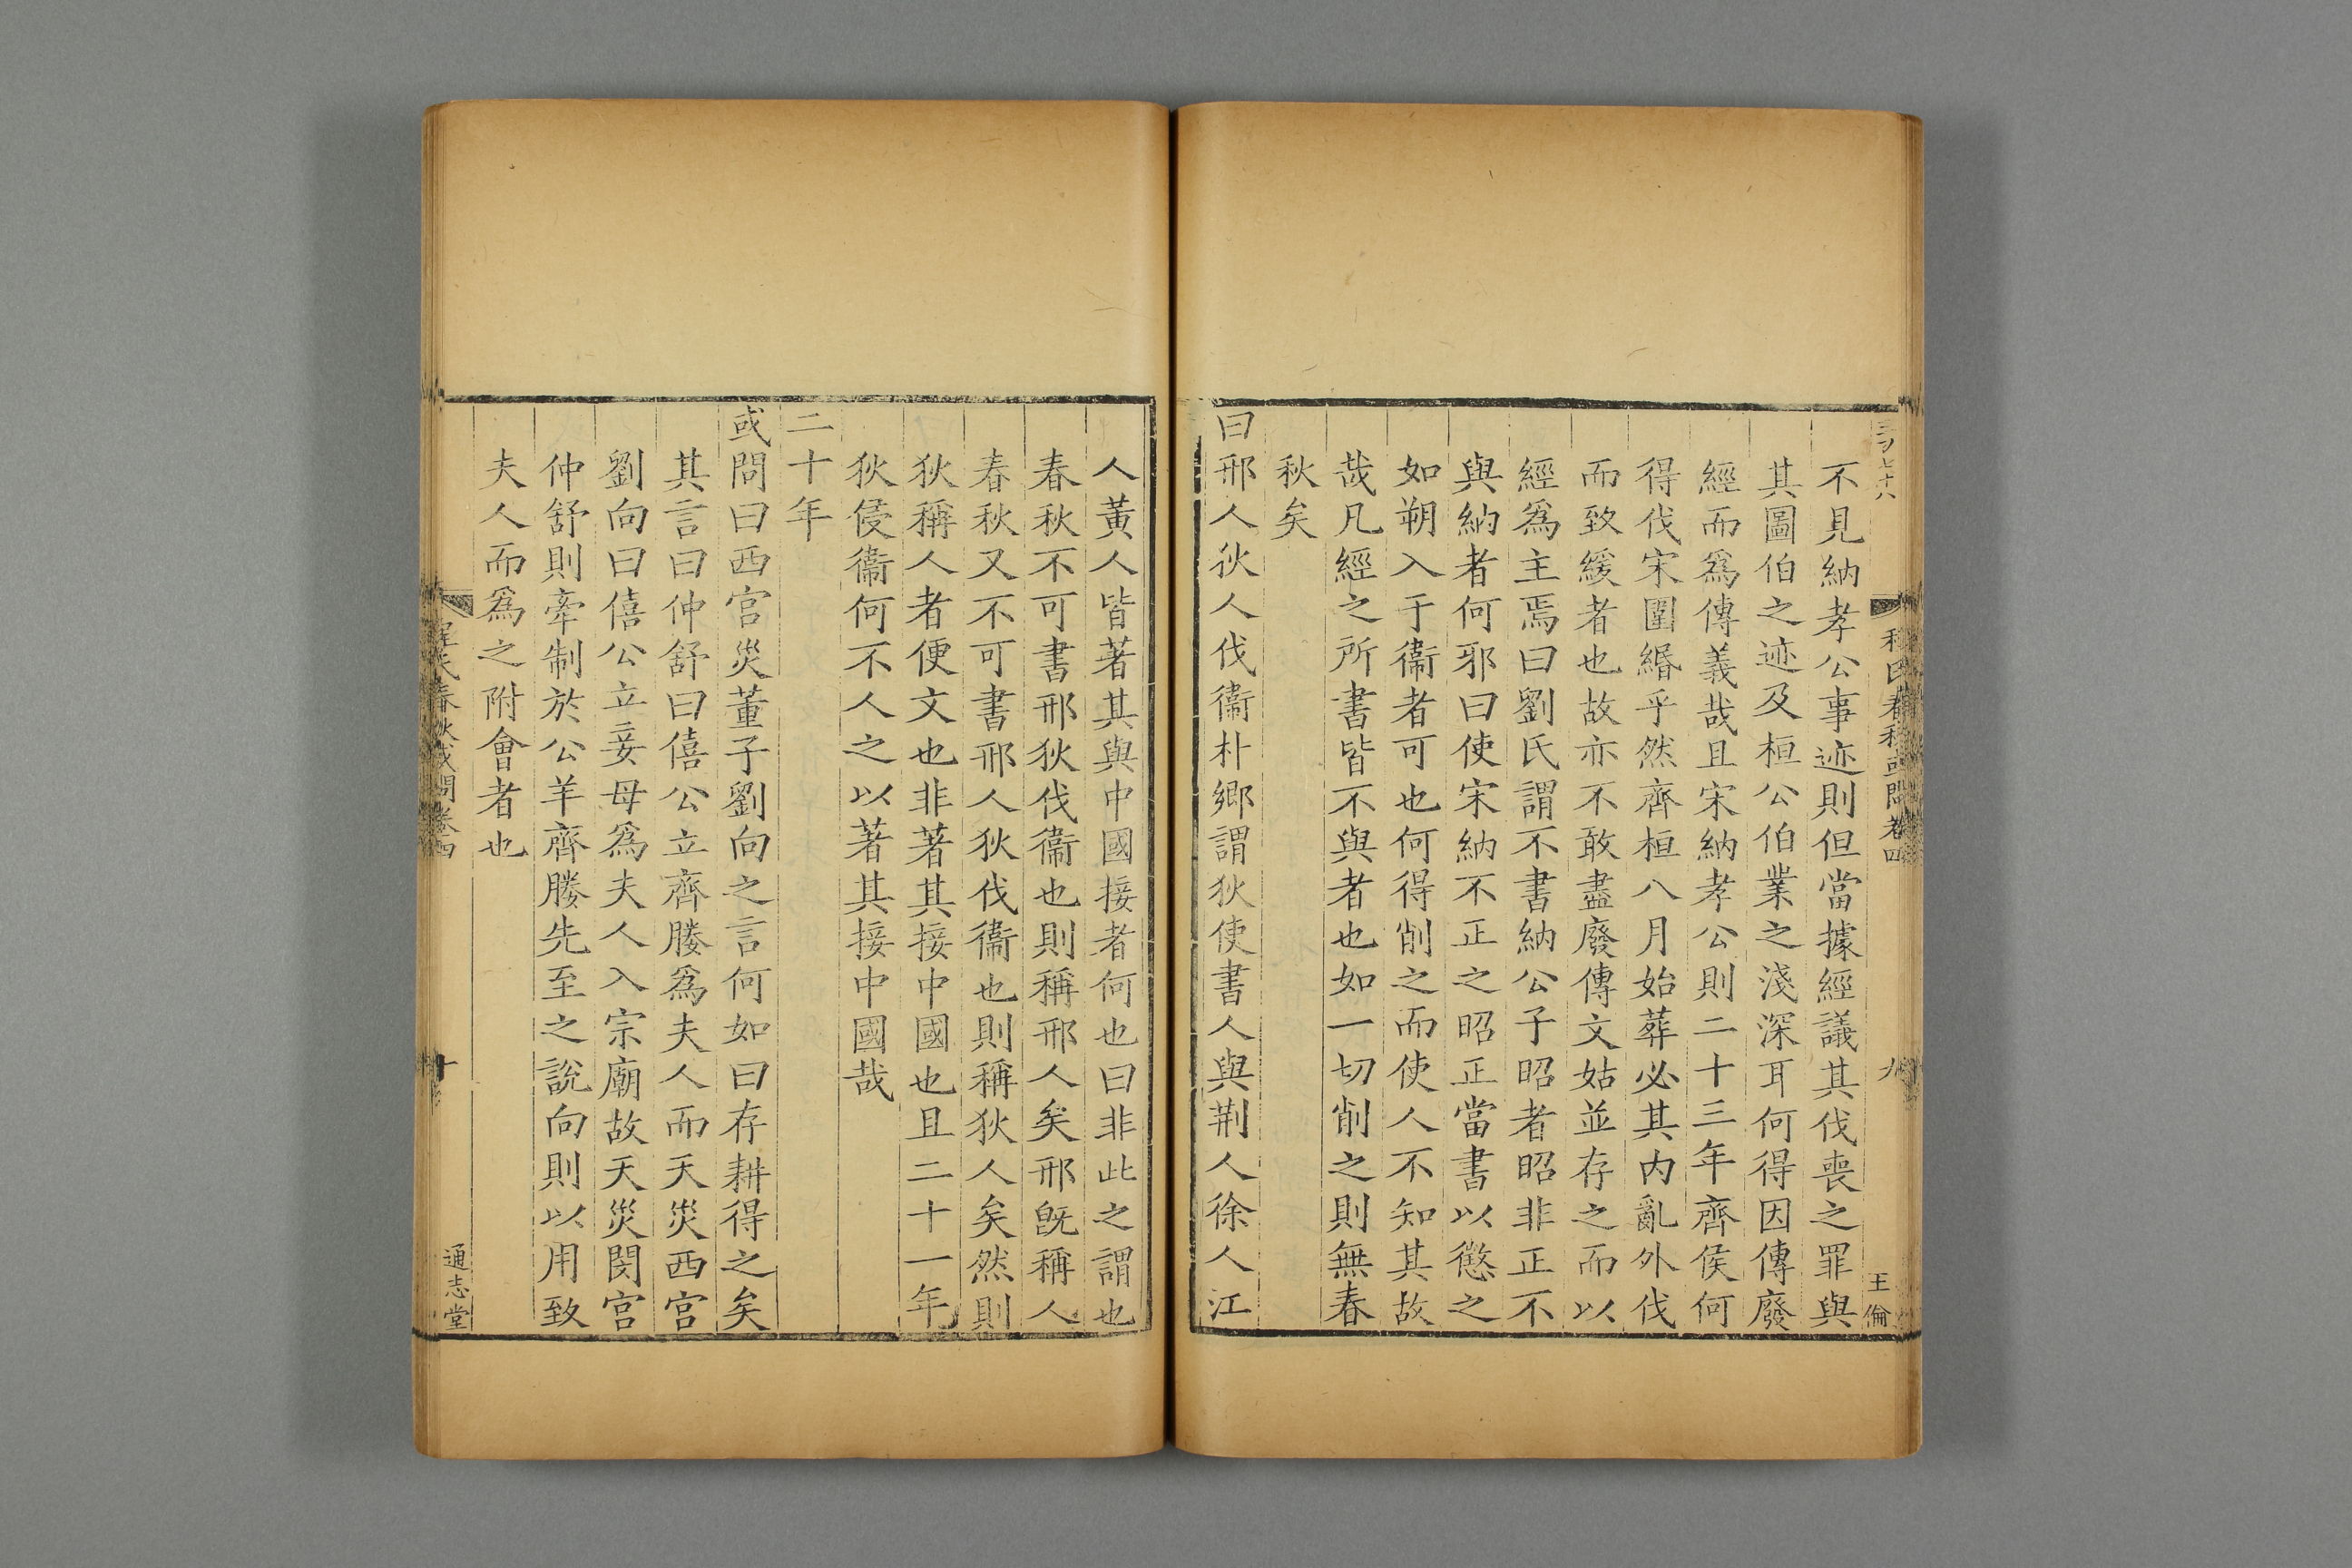 不見納孝公事迹則但當據經議其伐喪之罪與
其圖伯之迹及桓公伯業之淺深耳何得因傳廢
經而爲傳義哉且宋納孝公則二十三年齊侯何
得伐宋圍緡乎然齊桓八月始葬必其内亂外伐
而致緩者也故亦不敢盡廢傳文姑並存之而以
經爲主焉曰劉氏謂不書納公子昭者昭非正不
與納者何邪曰使宋納不正之昭正當書以懲之
如朔入于衞者可也何得削之而使人不知其故
哉凡經之所書皆不與者也如一切削之則無春
秋矣
曰邢人狄人伐衞朴鄉謂狄使書人與荆人徐人江
人黃人皆著其與中國接者何也曰非此之謂也
春秋不可書邢狄伐衞也則稱邢人矣邢旣稱人
春秋又不可書邢人狄伐衞也則稱狄人矣然則
狄稱人者便文也非著其接中國也且二十一年
狄侵衞何不人之以著其接中國哉
二十年
或問曰西宮災董子劉向之言何如曰存耕得之矣
其言曰仲舒曰僖公立齊媵爲夫人而天災西宮
劉向曰僖公立妾母爲夫人入宗廟故天災閔宮
仲舒則牽制於公羊齊媵先至之說向則以用致
夫人而爲之附會者也
程氏春秋或問卷四
十
通志堂
程氏春秋或問卷四
九
王倫